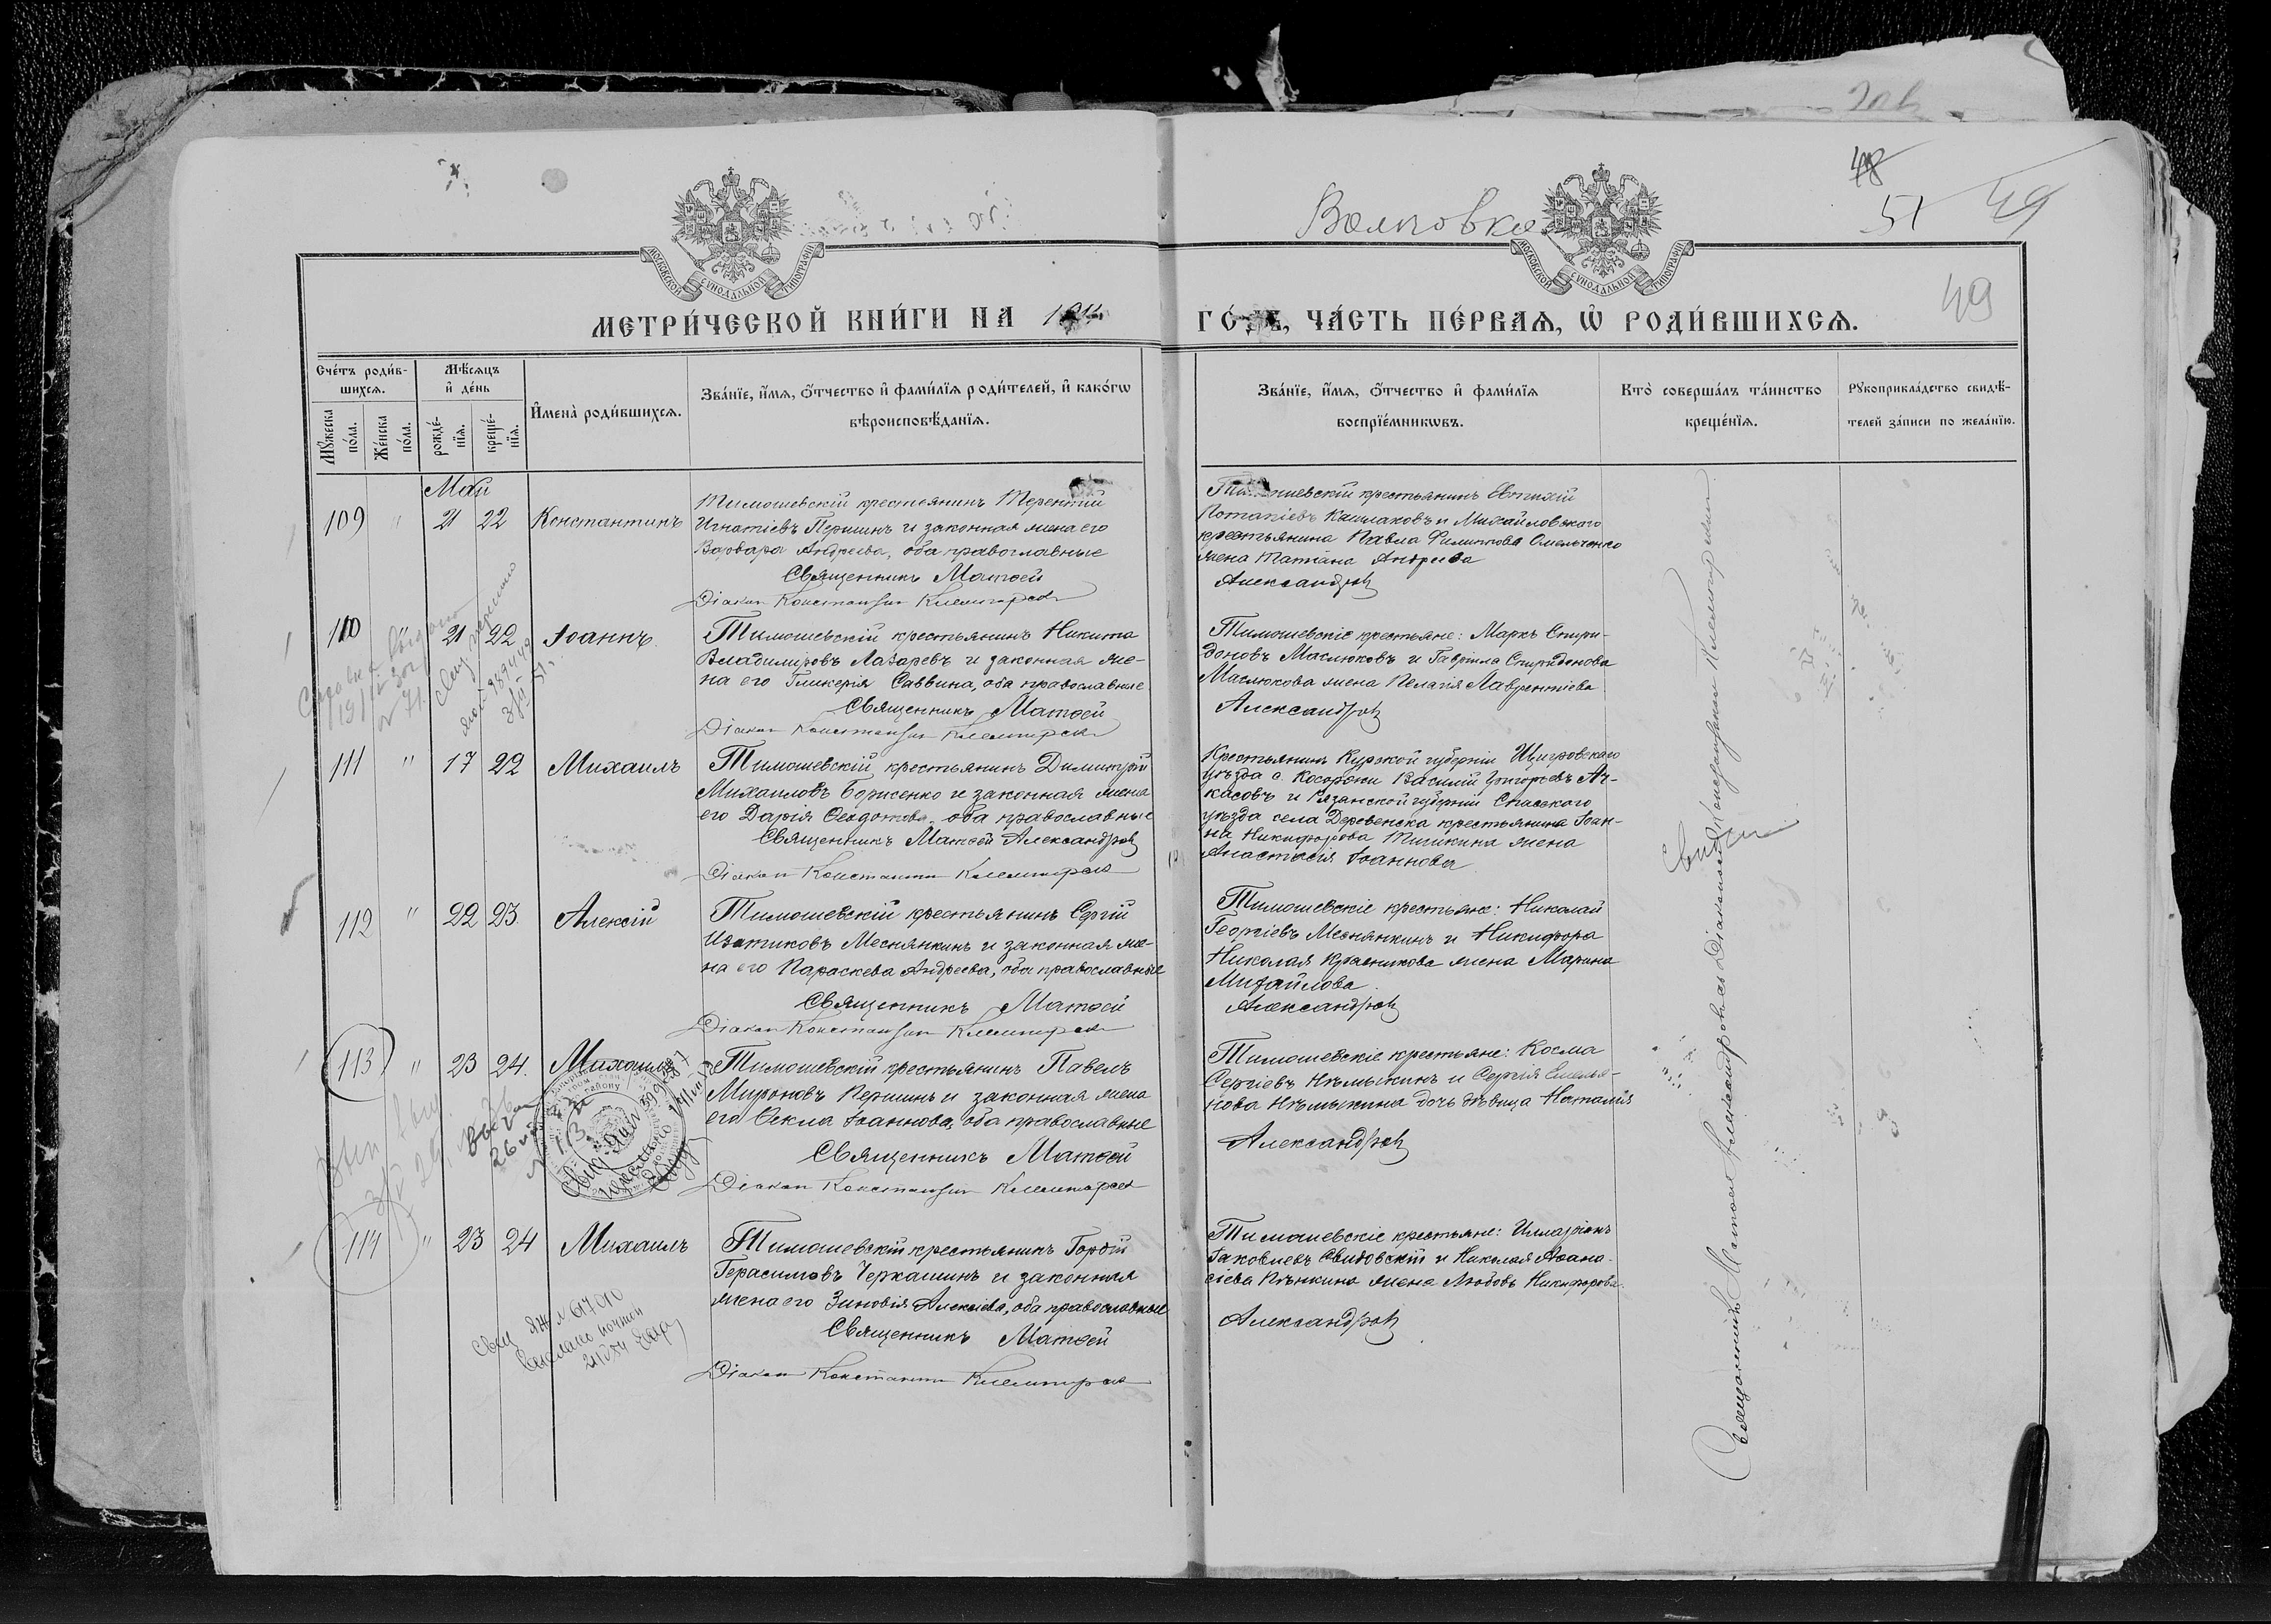 48
51 49
Волковка
МОСКОВСКОЙ СѴНОДАЛЬНОЙ ТИПОГРАФІИ
МОСКОВСКОЙ СѴНОДАЛЬНОЙ ТИПОГРАФІИ
49
МЕТРИ́ЧЕСКОЙ КНИ́ГИ НА 1911
ГО́ДЪ, ЧА́СТЬ ПЕ́РВАѦ, Ѽ РОДИ́ВШИХСѦ.
Сче́тъ роди́в-
шихсѧ.
Мꙋ́жеска по́ла.
Же́нска по́ла.
Мѣ́сѧцъ
и҆ де́нь
рожде́-
нїѧ.
креще́-
нїѧ.
И҆мена̀ роди́вшихсѧ.
Зва́нїе, и҆́мѧ, ѻ҆́тчество и҆ фами́лїѧ роди́телей, и҆ како́гѡ
вѣроисповѣ́данїѧ.
Зва́нїе, и҆́мѧ, ѻ҆́тчество и҆ фами́лїѧ
воспрїе́мникѡвъ.
Кто̀ соверша́лъ та́инство
креще́нїѧ.
Рꙋкоприкла́дство свидѣ́-
телей за́писи по жела́нїю.
Май
109 " 21 22 Константинъ
Тимошевскій крестьянинъ Терентій
Игнатіевъ Першинъ и законная жена его
Варвара Андреева, оба православные
Священникъ Матѳей
Діаконъ Константинъ
Тимошевскій крестьянинъ Евтихій
Потапіевъ Кашлаковъ и Михайловскаго
крестьянина Павла Филиппова Омельченко
жена Татіана Андреева
Александровъ
110 " 21 22 Іоаннъ
Тимошевскій крестьянинъ Никита
Владиміровъ Лазаревъ и законная же-
на его Гликерія Саввина, оба православные
Священникъ Матѳей
Діаконъ Константинъ
Тимошевскіе крестьяне: Маркъ Спири-
доновъ Маслюковъ и Гавріила Спиридонова
Маслюкова жена Пелагія Лаврентіева
Александровъ
111 " 17 22 Михаилъ
Тимошевскій крестьянинъ Димитрій
Михаиловъ Борисенко и законная жена
его Дарія Ѳеодотова, оба православные
Священникъ Матѳей Александровъ
Діаконъ Константинъ
Крестьянинъ Курской губерніи Щигровскаго
уѣзда с. Косоржи Василій Григорьевъ Ач-
касовъ и Рязанской губерніи Спасскаго
уѣзда села Деревенска крестьянина Іоан-
на Никифорова Тишкина жена
Анастасія Іоаннова
112 " 22 23 Алексій
Тимошевскій крестьянинъ Сергій
Меснянкинъ и законная же-
на его Параскева Андреева, оба православные
Священникъ Матѳей
Діаконъ Константинъ
Тимошевскіе крестьяне: Николай
Георгіевъ Меснянкинъ и Никифора
Николая Красникова жена Марина
Михайлова
Александровъ
113 " 23 24. Михаилъ
Тимошевскій крестьянинъ Павелъ
Мироновъ Першинъ и законная жена
его Ѳекла Іоаннова, оба православные
Священникъ Матѳей
Діаконъ Константинъ
Тимошевскіе крестьяне: Косма
Сергіевъ Нѣмыкинъ и Сергія Емелья-
нова Нѣмыкина дочь дѣвица Наталія
Александровъ
114 " 23 24 Михаилъ
Тимошевскій крестьянинъ Гордій
Герасимовъ Черкашинъ и законная
жена его Зиновія Алексіева, оба православные
Священникъ Матѳей
Діаконъ Константинъ
Тимошевскіе крестьяне: Илларіонъ
Іаковлевъ Свидовскій и Николая Аѳана-
сіева Пѣнкина жена Любовь Никифорова.
Александровъ
Священникъ Матѳей Александровъ съ Діакономъ